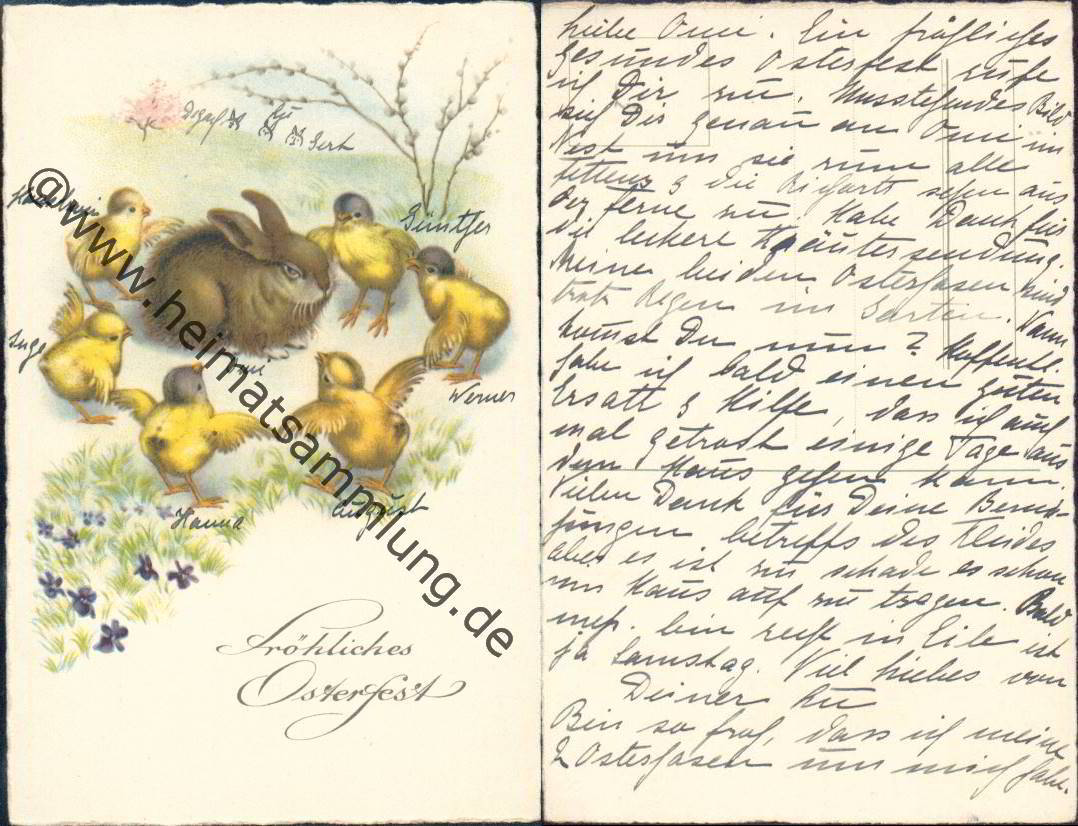 Gert
Günther
Inge
Omi
Werner
Hanna
August
Fröhliches
Osterfest
@www.heimatsammlung.de
Liebe Omi. Ein fröhliches
gesundes Osterfest rufe
ich Dir zu. Bild
sieh Dir genau an Omi im
Nest um sie rum alle
& die sehen aus
der Ferne zu. Habe Dank für
die leckere Kräutersendung.
Meine beiden Osterhasen sind
trotz Regen im Garten. Wann
kommst Du nun? Hoffentl.
habe ich bald einen guten
Ersatz & Hilfe, dass ich auch
mal getrost einige Tage aus
dem Haus gehen kann.
Vielen Dank für Deine Bemüh-
ungen betreffs des Kleides
aber es ist zu schade es schon
im Haus auf zu tragen. Bald
mehr. bin recht in Eile ist
ja Samstag. Viel Liebes von
Deiner
Bin so froh, dass ich meine
2 Osterhasen um mich habe.